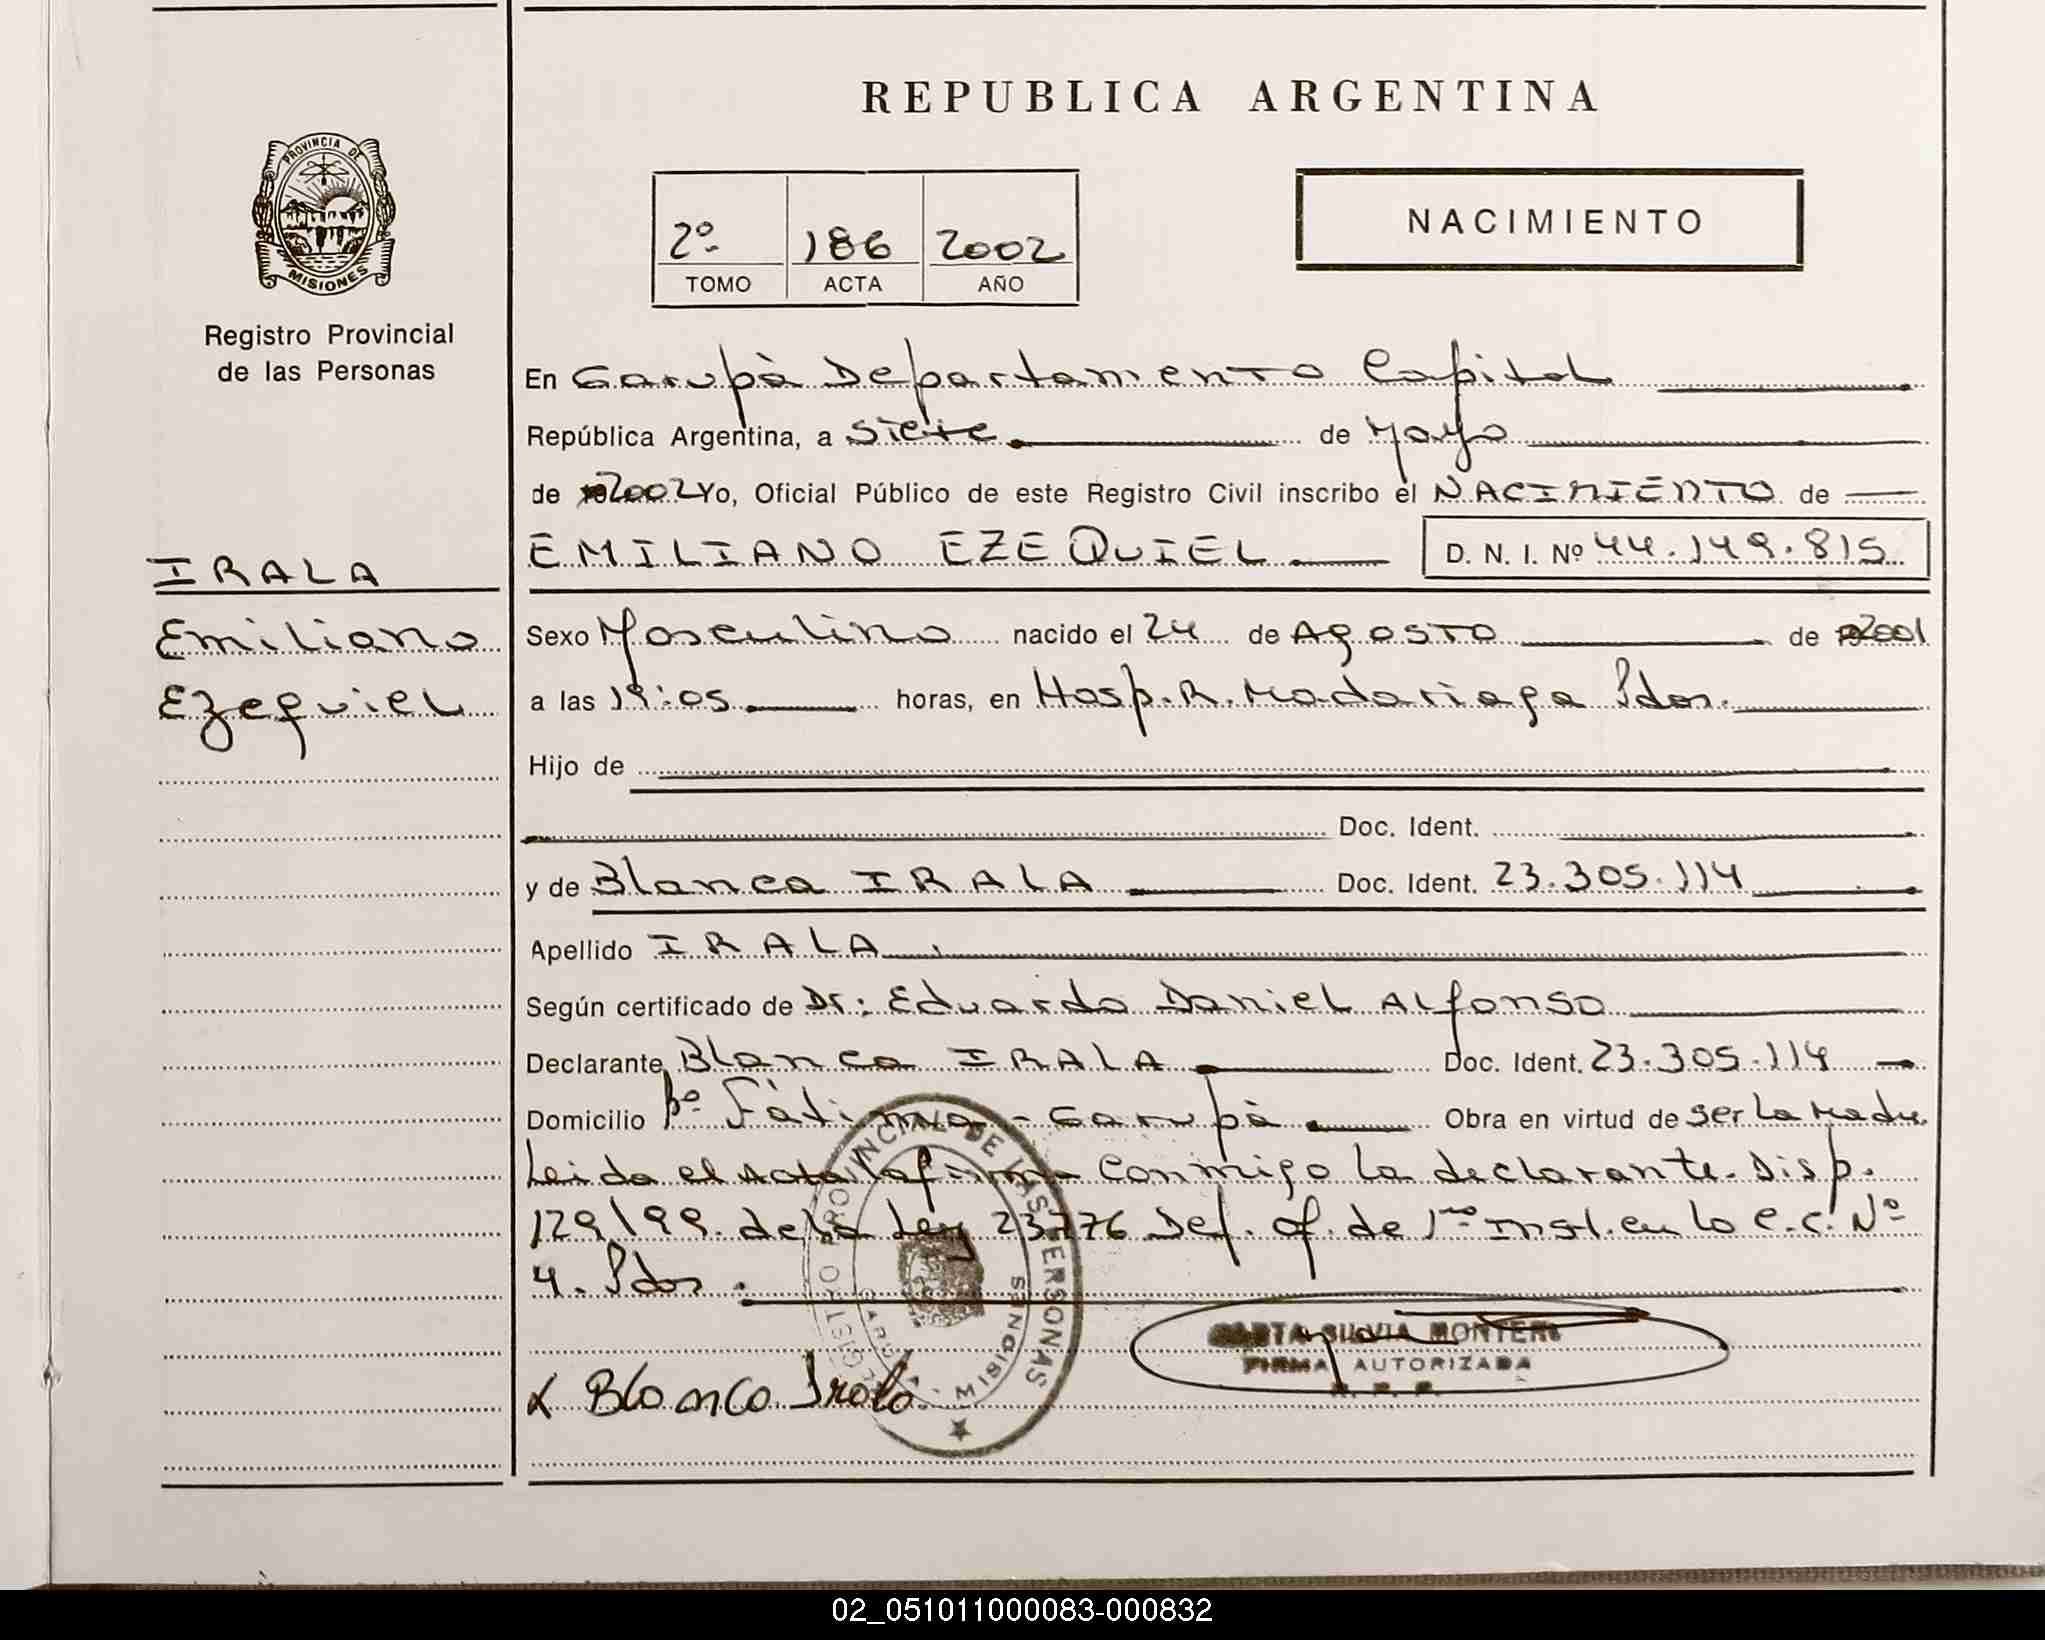 REPUBLICA ARGENTINA
PROVINCIA DE
MISIONES
Registro Provincial
de las Personas
2º 186 2002
TOMO ACTA AÑO
NACIMIENTO
En Garupà Departamento Capital
República Argentina, a siete de Mayo
de 2002 Yo, Oficial Público de este Registro Civil inscribo el NACIMIENTO de
IRALA
EMILIANO EZEQUIEL D. N. I. Nº 44.149.815
Emiliano
Ezequiel
Sexo Masculino nacido el 24 de Agosto de 2001
a las 19:05 horas, en Hosp. R. Madariaga Pdas.
Hijo de
Doc. Ident.
y de Blanca IRALA Doc. Ident. 23.305.114
Apellido IRALA
Según certificado de Dr: Eduardo Daniel Alfonso
Declarante Blanca IRALA Doc. Ident. 23.305.114
Domicilio Bº Fátima - Garupà Obra en virtud de ser la Madre
Leida el Acta la firma Conmigo la declarante. Disp.
129/99. de la Ley 23776 Def. Of. de 1ra Inst. en lo C.C. Nº
4. Pdas.
REGISTRO PROVINCIAL DE LAS PERSONAS
GARUPA - MISIONES
SILVIA
FIRMA AUTORIZADA
R. P. P.
x Blanca Irala
02_051011000083-000832